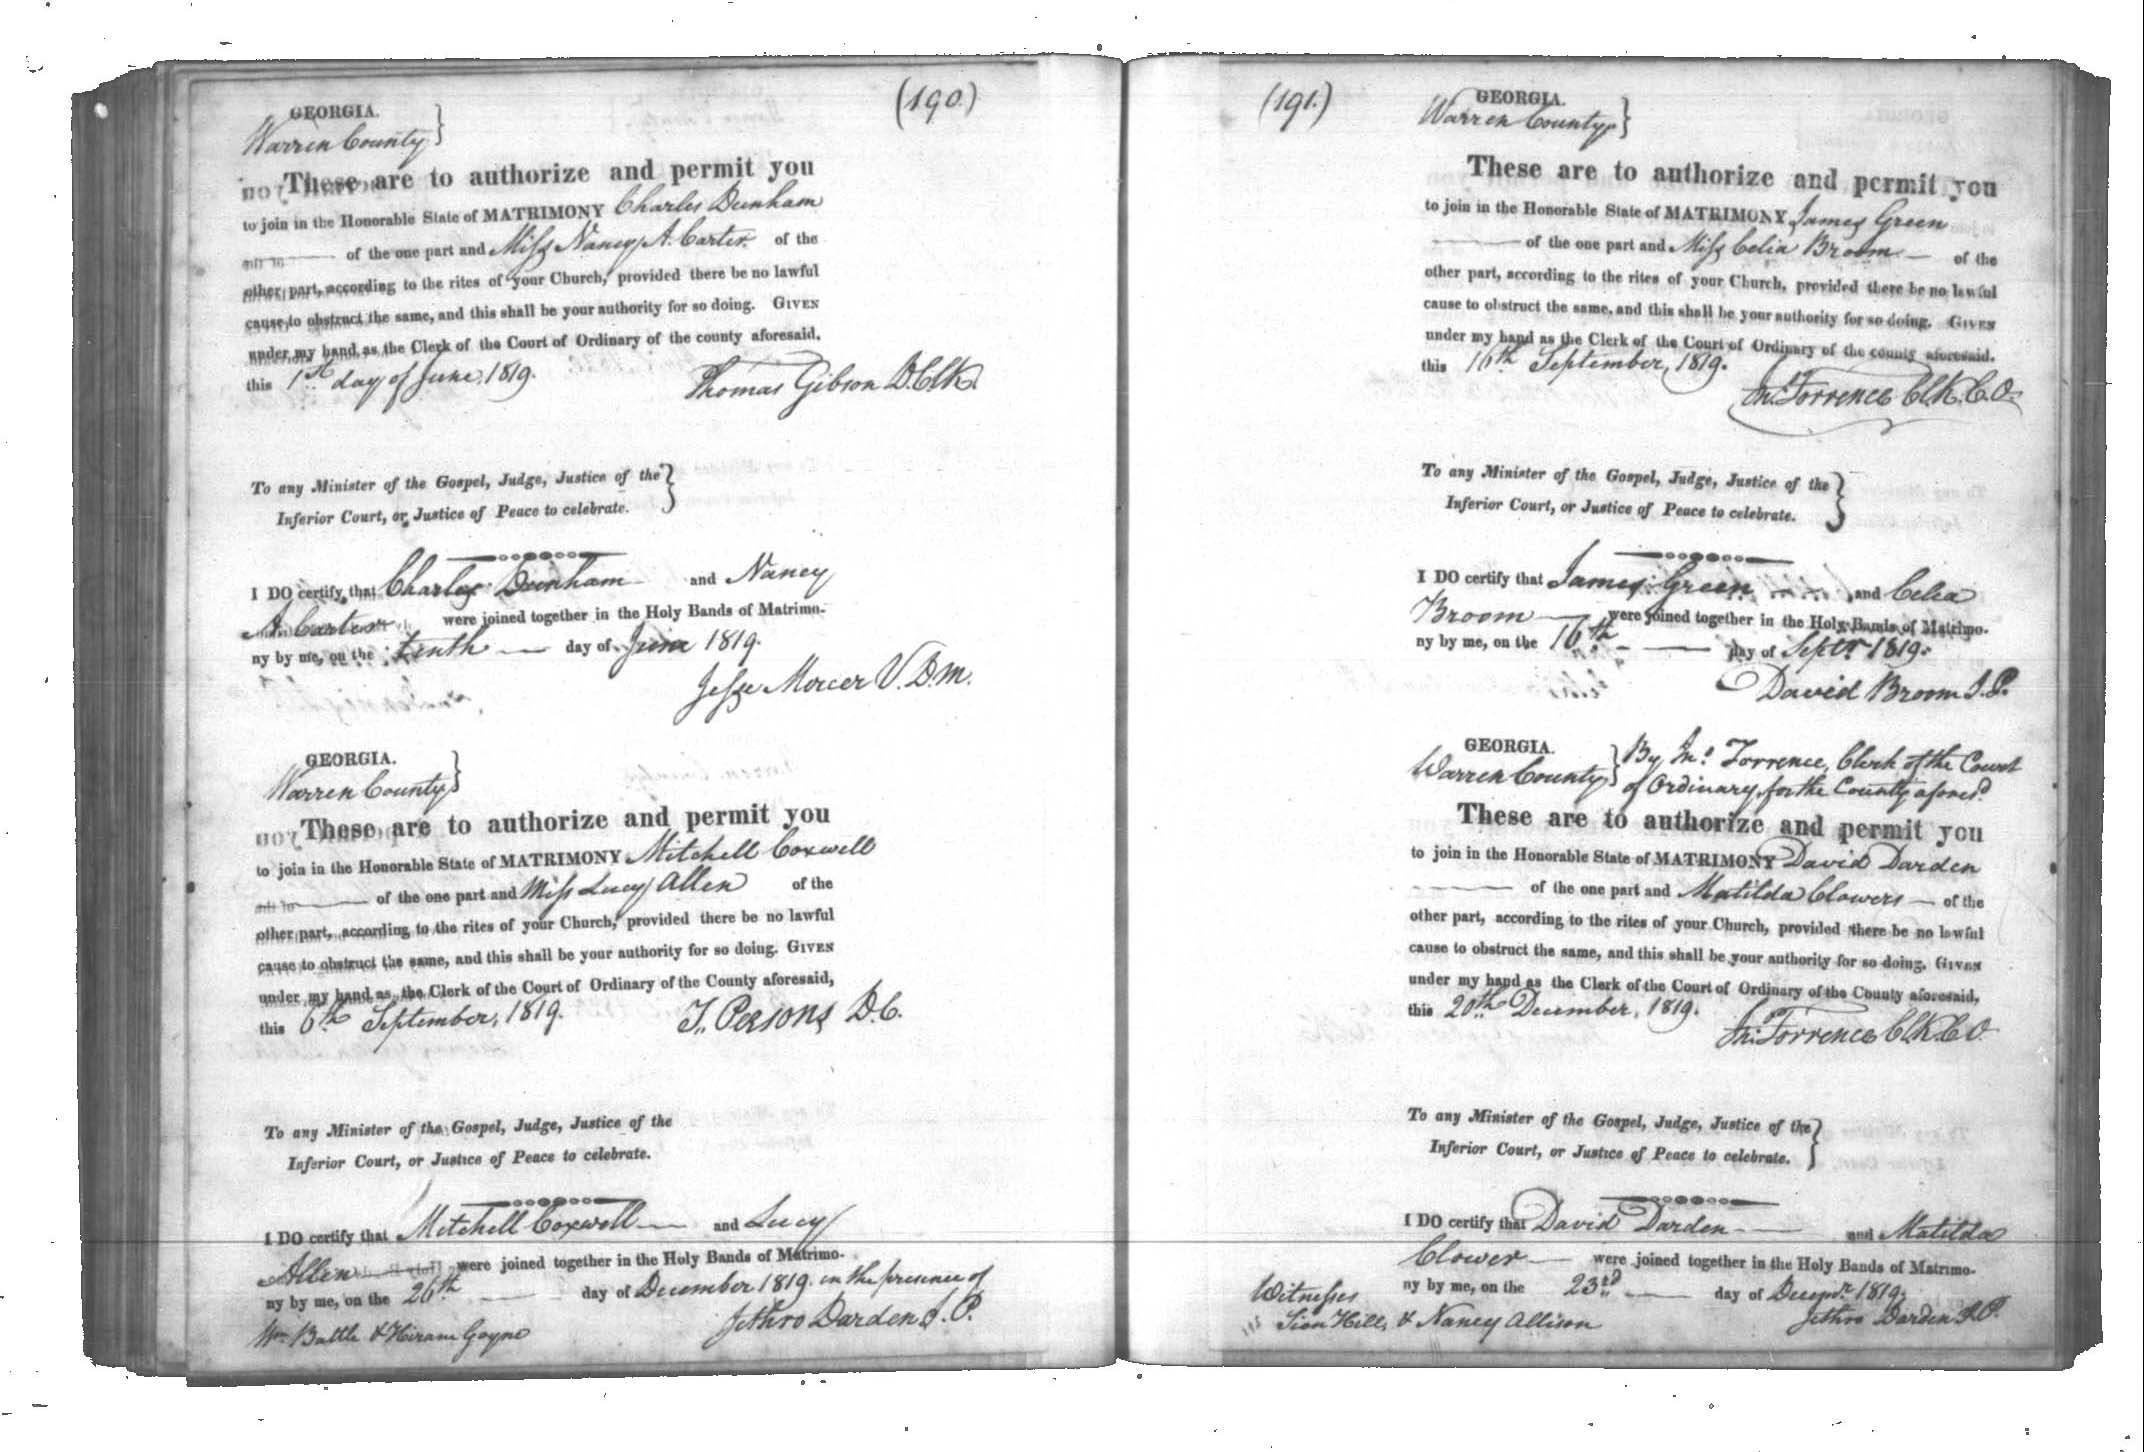 (190.)
GEORGIA.
Warren County }
These are to authorize and permit you
to join in the Honorable State of MATRIMONY Charles Dunham
of the one part and Miss Nancy A. Carter of the
other part, according to the rites of your Church, provided there be no lawful
cause to obstruct the same, and this shall be your authority for so doing. GIVEN
under my hand as the Clerk of the Court of Ordinary of the county aforesaid,
this 1st day of June, 1819.
Thomas Gibson D. Clk.
To any Minister of the Gospel, Judge, Justice of the }
Inferior Court, or Justice of Peace to celebrate.
I DO certify that Charles Dunham and Nancy
A. Carter were joined together in the Holy Bands of Matrimo-
ny by me, on the tenth day of June 1819.
Jesse Mercer V. D. M.
GEORGIA.
Warren County }
These are to authorize and permit you
to join in the Honorable State of MATRIMONY Mitchell Coxwell
of the one part and Miss Lucy Allen of the
other part, according to the rites of your Church, provided there be no lawful
cause to obstruct the same, and this shall be your authority for so doing. GIVEN
under my hand as the Clerk of the Court of Ordinary of the County aforesaid,
this 6th September, 1819.
T. Persons D. C.
To any Minister of the Gospel, Judge, Justice of the
Inferior Court, or Justice of Peace to celebrate.
I DO certify that Mitchell Coxwell and Lucy
Allen were joined together in the Holy Bands of Matrimo-
ny by me, on the 26th day of December 1819. in the presence of
Wm Battle & Hiram Gayne Jethro Darden J. P.
(191.)
GEORGIA.
Warren County }
These are to authorize and permit you
to join in the Honorable State of MATRIMONY James Green
of the one part and Miss Celia Broom of the
other part, according to the rites of your Church, provided there be no lawful
cause to obstruct the same, and this shall be your authority for so doing. GIVEN
under my hand as the Clerk of the Court of Ordinary of the county aforesaid.
this 16th September, 1819.
Jno. Torrence Clk. C. O.
To any Minister of the Gospel, Judge, Justice of the }
Inferior Court, or Justice of Peace to celebrate.
I DO certify that James Green and Celia
Broom were joined together in the Holy Bands of Matrimo-
ny by me, on the 16th day of Septr 1819.
David Broom J. P.
GEORGIA. } By Jno. Torrence, Clerk of the Court
Warren County } of Ordinary, for the County aforesd.
These are to authorize and permit you
to join in the Honorable State of MATRIMONY David Darden
of the one part and Matilda Clowers of the
other part, according to the rites of your Church, provided there be no lawful
cause to obstruct the same, and this shall be your authority for so doing. GIVEN
under my hand as the Clerk of the Court of Ordinary of the County aforesaid,
this 20th December, 1819.
Jno. Torrence Clk. C. O.
To any Minister of the Gospel, Judge, Justice of the }
Inferior Court, or Justice of Peace to celebrate.
I DO certify that David Darden and Matilda
Clower were joined together in the Holy Bands of Matrimo-
ny by me, on the 23rd day of Decemr. 1819.
Witnesses
Sion Hill, & Nancy Allison Jethro Darden J. P.